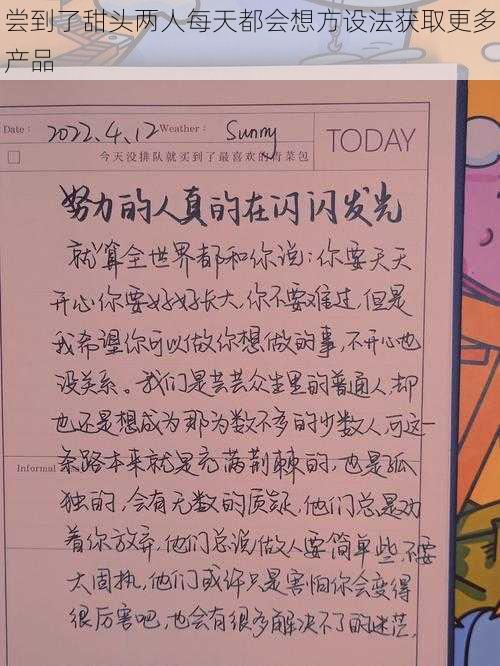 尝到了甜头两人每天都会想方设法获取更多
产品
Date: 2022.4.12 Weather: Sunny TODAY
今天没排队就买到了最喜欢的青菜包
努力的人真的在闪闪发光
就算全世界都和你说：你要天天
开心你要好好长大，你不要难过，但是
我希望你可以做你想做的事，不开心也
没关系。我们是芸芸众生里的普通人，却
也还是想成为那为数不多的少数人，可这一
Informal 条路本来就是充满荆棘的，也是孤
独的，会有无数的质疑，他们总是劝
着你放弃，他们总说做人要简单些，不要
太固执，他们或许只是害怕你会变得
很厉害吧，也会有很多解决不了的迷茫，